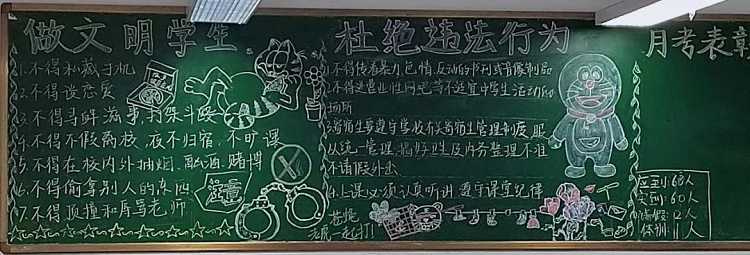 做文明学生
1.不得私藏手机
2.不得谈恋爱
3.不得寻衅滋事,打架斗殴
4.不得不假离校,夜不归宿,不旷课
5.不得在校内外抽烟、酗酒、赌博
6.不得偷拿别人的东西
7.不得顶撞和辱骂老师
注意
杜绝违法行为
1.不得传看暴力、色情、反动的书刊或音像制品
2.不得进营业性网吧等不适宜中学生活动的
场所
3.寄宿生要遵守学校有关寄宿生管理制度,服
从统一管理,搞好卫生及内务整理不准
不请假外出
4.上课必须认真听讲 遵守课堂纪律
苍蝇
老虎一起打!
月考表彰
应到:63人
实到:60人
请假:2人
体训:1人